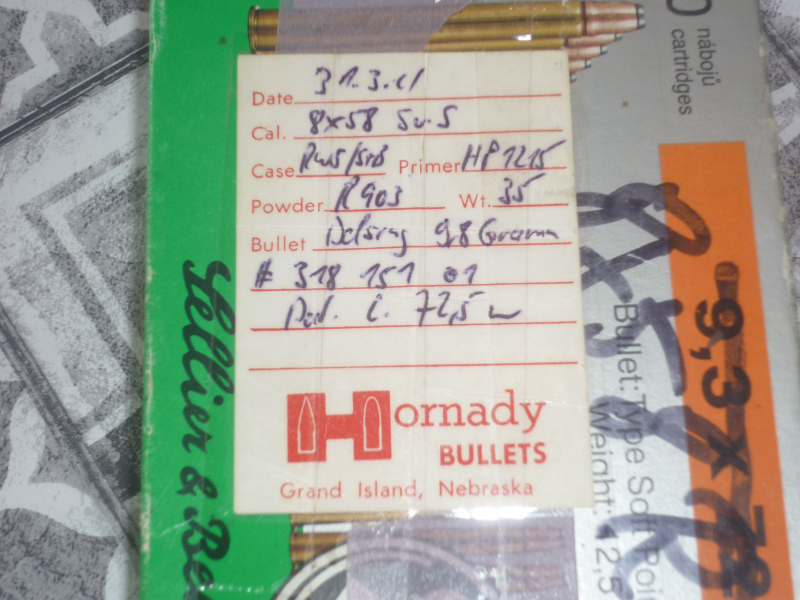 Date 31.3.01
Cal. 8x58 Sv.S
Case RWS/StB Primer HP1215
Powder R903 Wt. 35
Bullet Delsing 9,8 Gramm
# 318 151 01
Pat. L. 72,5
Hornady
BULLETS
Grand Island, Nebraska
Sellier & Be
0 nábojů
cartridges
9,3 x 72
Bullet: Type Soft Poi
Weight: 12,5